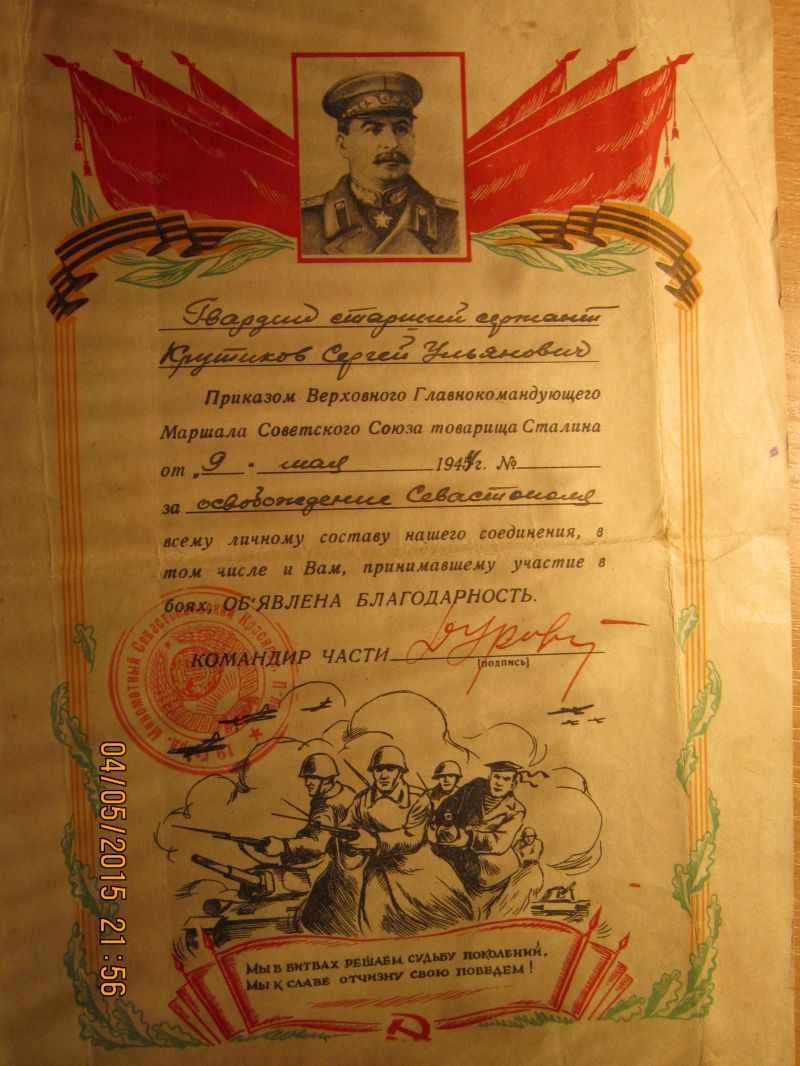 Гвардии старший сержант
Крутиков Сергей Ульянович
Приказом Верховного Главнокомандующего
Маршала Советского Союза товарища Сталина
от „9 " мая 1944г. №
за освобождение Севастополя
всему личному составу нашего соединения, в
том числе и Вам, принимавшему участие в
боях, ОБ'ЯВЛЕНА БЛАГОДАРНОСТЬ.
КОМАНДИР ЧАСТИ
[подпись]
19 Гвард. Минометный Севастопольский Красноз.
МЫ В БИТВАХ РЕШАЕМ СУДЬБУ ПОКОЛЕНИЙ,
МЫ К СЛАВЕ ОТЧИЗНУ СВОЮ ПОВЕДЕМ !
04/05/2015 21:56